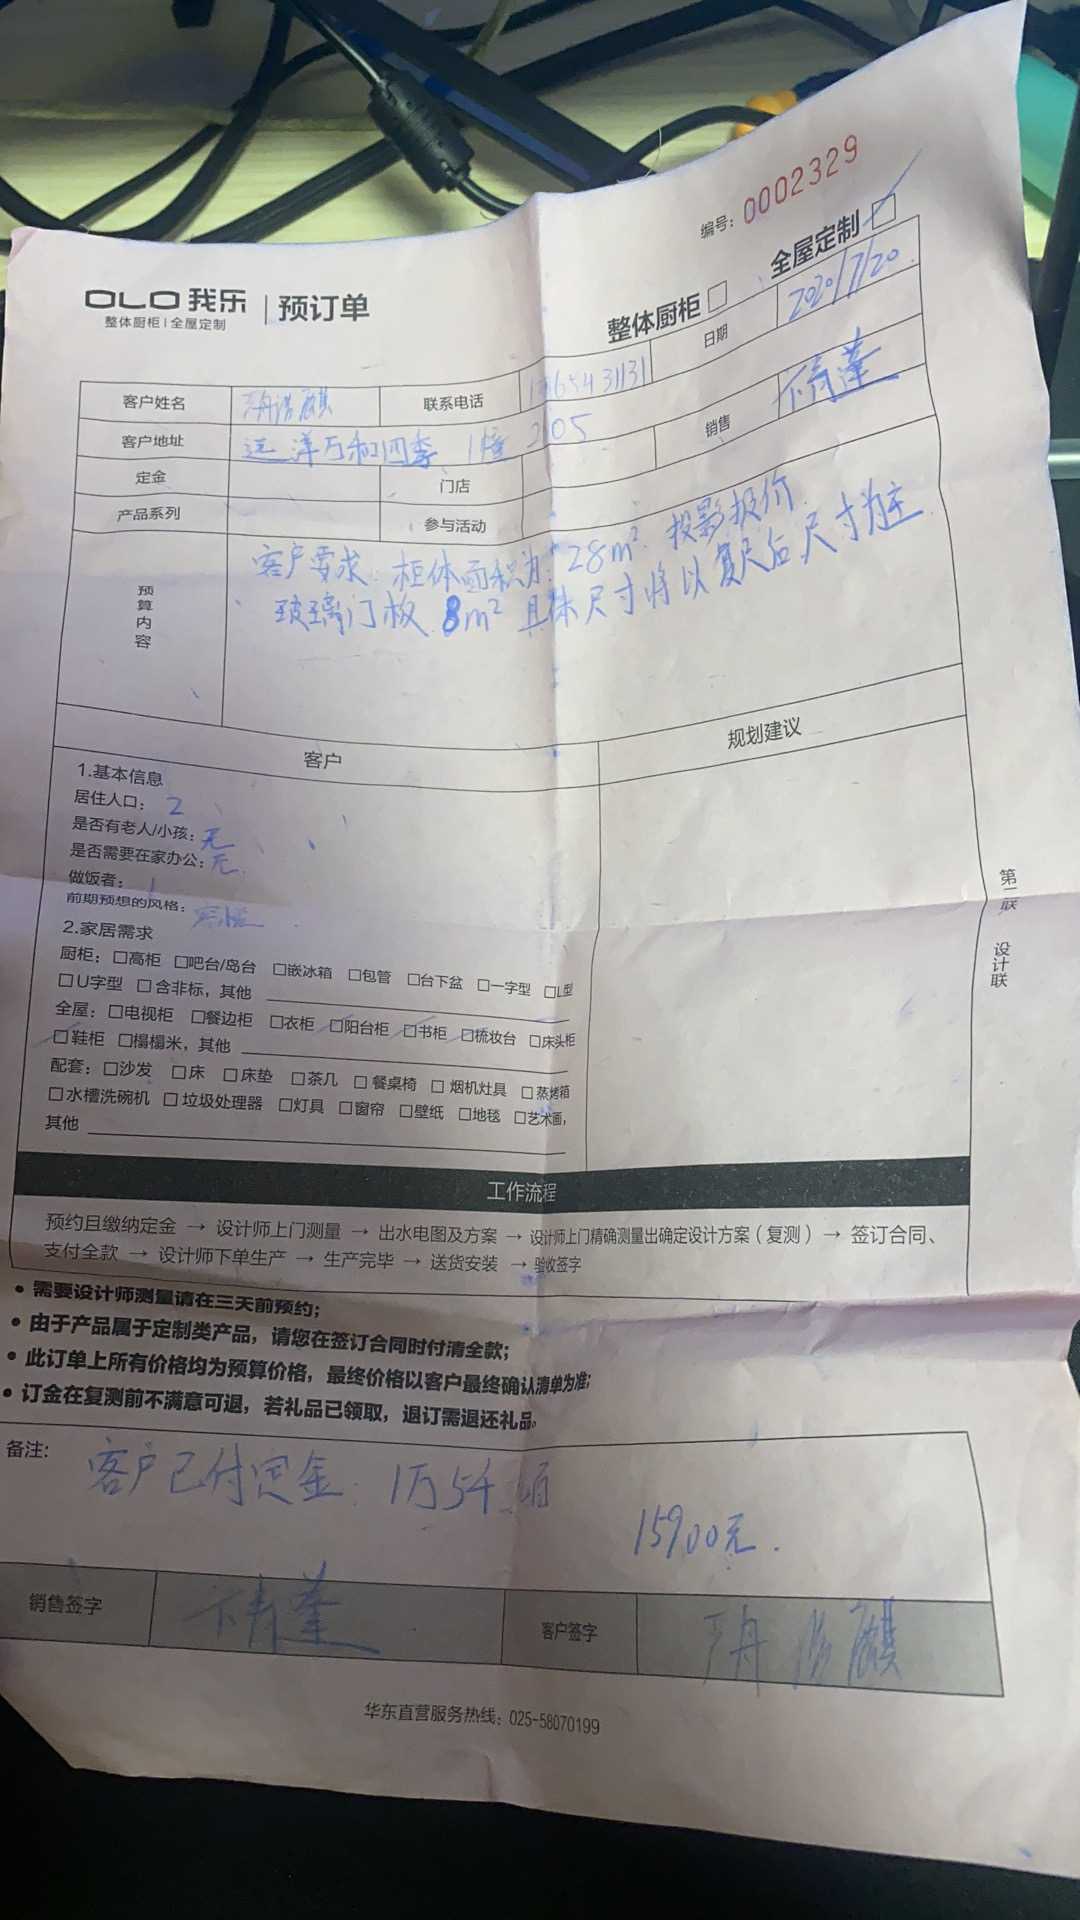 编号：0002329
OLO 我乐 | 预订单
整体厨柜 | 全屋定制
整体厨柜 □ 全屋定制 □
客户姓名 联系电话 日期 2020/7/20
客户地址 远洋万和四季 1幢 2105 销售 卞青莲
定金 门店
产品系列 参与活动
预算内容
客户要求：柜体面积为：28m² 投影报价
玻璃门板 8m² 具体尺寸将以复尺后尺寸为主
客户 规划建议
1.基本信息
居住人口：2
是否有老人/小孩：无
是否需要在家办公：无
做饭者：1
前期预想的风格：
2.家居需求
厨柜：□高柜 □吧台/岛台 □嵌冰箱 □包管 □台下盆 □一字型 □L型
□U字型 □含非标，其他
全屋：□电视柜 □餐边柜 □衣柜 □阳台柜 □书柜 □梳妆台 □床头柜
□鞋柜 □榻榻米，其他
配套：□沙发 □床 □床垫 □茶几 □餐桌椅 □烟机灶具 □蒸烤箱
□水槽洗碗机 □垃圾处理器 □灯具 □窗帘 □壁纸 □地毯 □艺术画，
其他
第二联 设计联
工作流程
预约且缴纳定金 → 设计师上门测量 → 出水电图及方案 → 设计师上门精确测量出确定设计方案（复测） → 签订合同、
支付全款 → 设计师下单生产 → 生产完毕 → 送货安装 → 验收签字
• 需要设计师测量请在三天前预约；
• 由于产品属于定制类产品，请您在签订合同时付清全款；
• 此订单上所有价格均为预算价格，最终价格以客户最终确认清单为准；
• 订金在复测前不满意可退，若礼品已领取，退订需退还礼品。
备注：
客户已付定金：1万5千
15900元.
销售签字 卞青莲 客户签字
华东直营服务热线：025-58070199